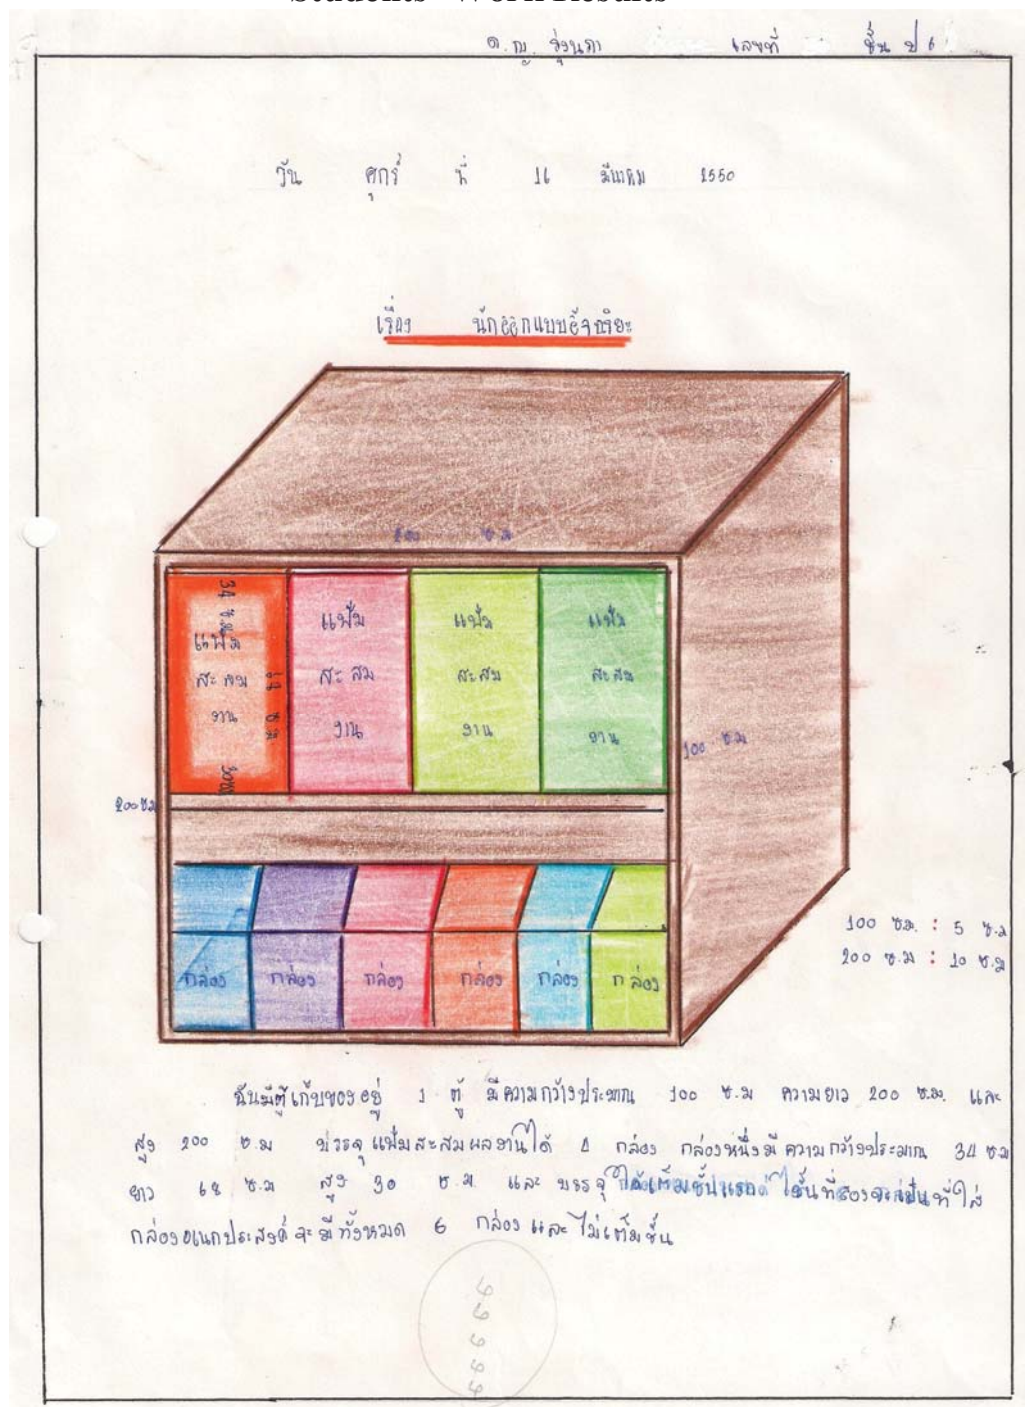 Students' Work Results
ด.ญ. รุ่งนภา เลขที่ ชั้น ป 6
วัน ศุกร์ ที่ 16 มีนาคม 2550
เรื่อง นักออกแบบอัจฉริยะ
200 ซ.ม
34 ซ.ม
แฟ้ม แฟ้ม แฟ้ม แฟ้ม
สะสม สะสม สะสม สะสม
งาน งาน งาน งาน
68 ซ.ม
100 ซ.ม
200 ซ.ม
กล่อง กล่อง กล่อง กล่อง กล่อง กล่อง
100 ซ.ม. : 5 ซ.ม
200 ซ.ม : 10 ซ.ม
ฉันมีตู้เก็บของอยู่ 1 ตู้ มีความกว้างประมาณ 100 ซ.ม ความยาว 200 ซ.ม. และ
สูง 200 ซ.ม บรรจุแฟ้มสะสมผลงานได้ 4 กล่อง กล่องหนึ่งมีความกว้างประมาณ 34 ซ.ม
ยาว 68 ซ.ม สูง 30 ซ.ม. และ บรรจุได้เต็มชั้นแรก ชั้นที่สองจะเป็นที่ใส่
กล่องอเนกประสงค์ จะมีทั้งหมด 6 กล่อง และ ไม่เต็มชั้น